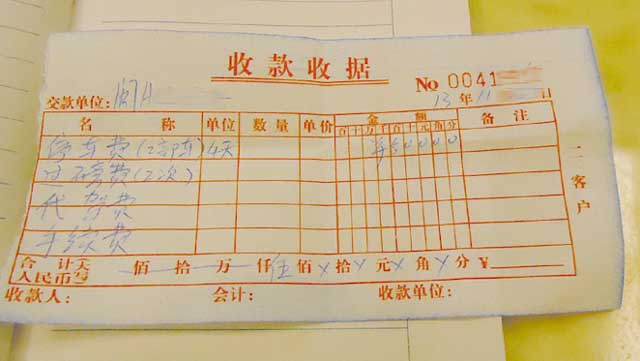 收款收据
No 0041
交款单位: 闽A
13 年 11 日
名 称 单位 数量 单价 金 额 备 注
百 十 万 千 百 十 元 角 分
停车费(2部车) 4天 ¥50000
过磅费(2次)
代驾费
手续费
合计 人民币 佰 拾 万 仟 伍 佰 拾 元 角 分 ¥
收款人: 会计: 收款单位:
二 客户